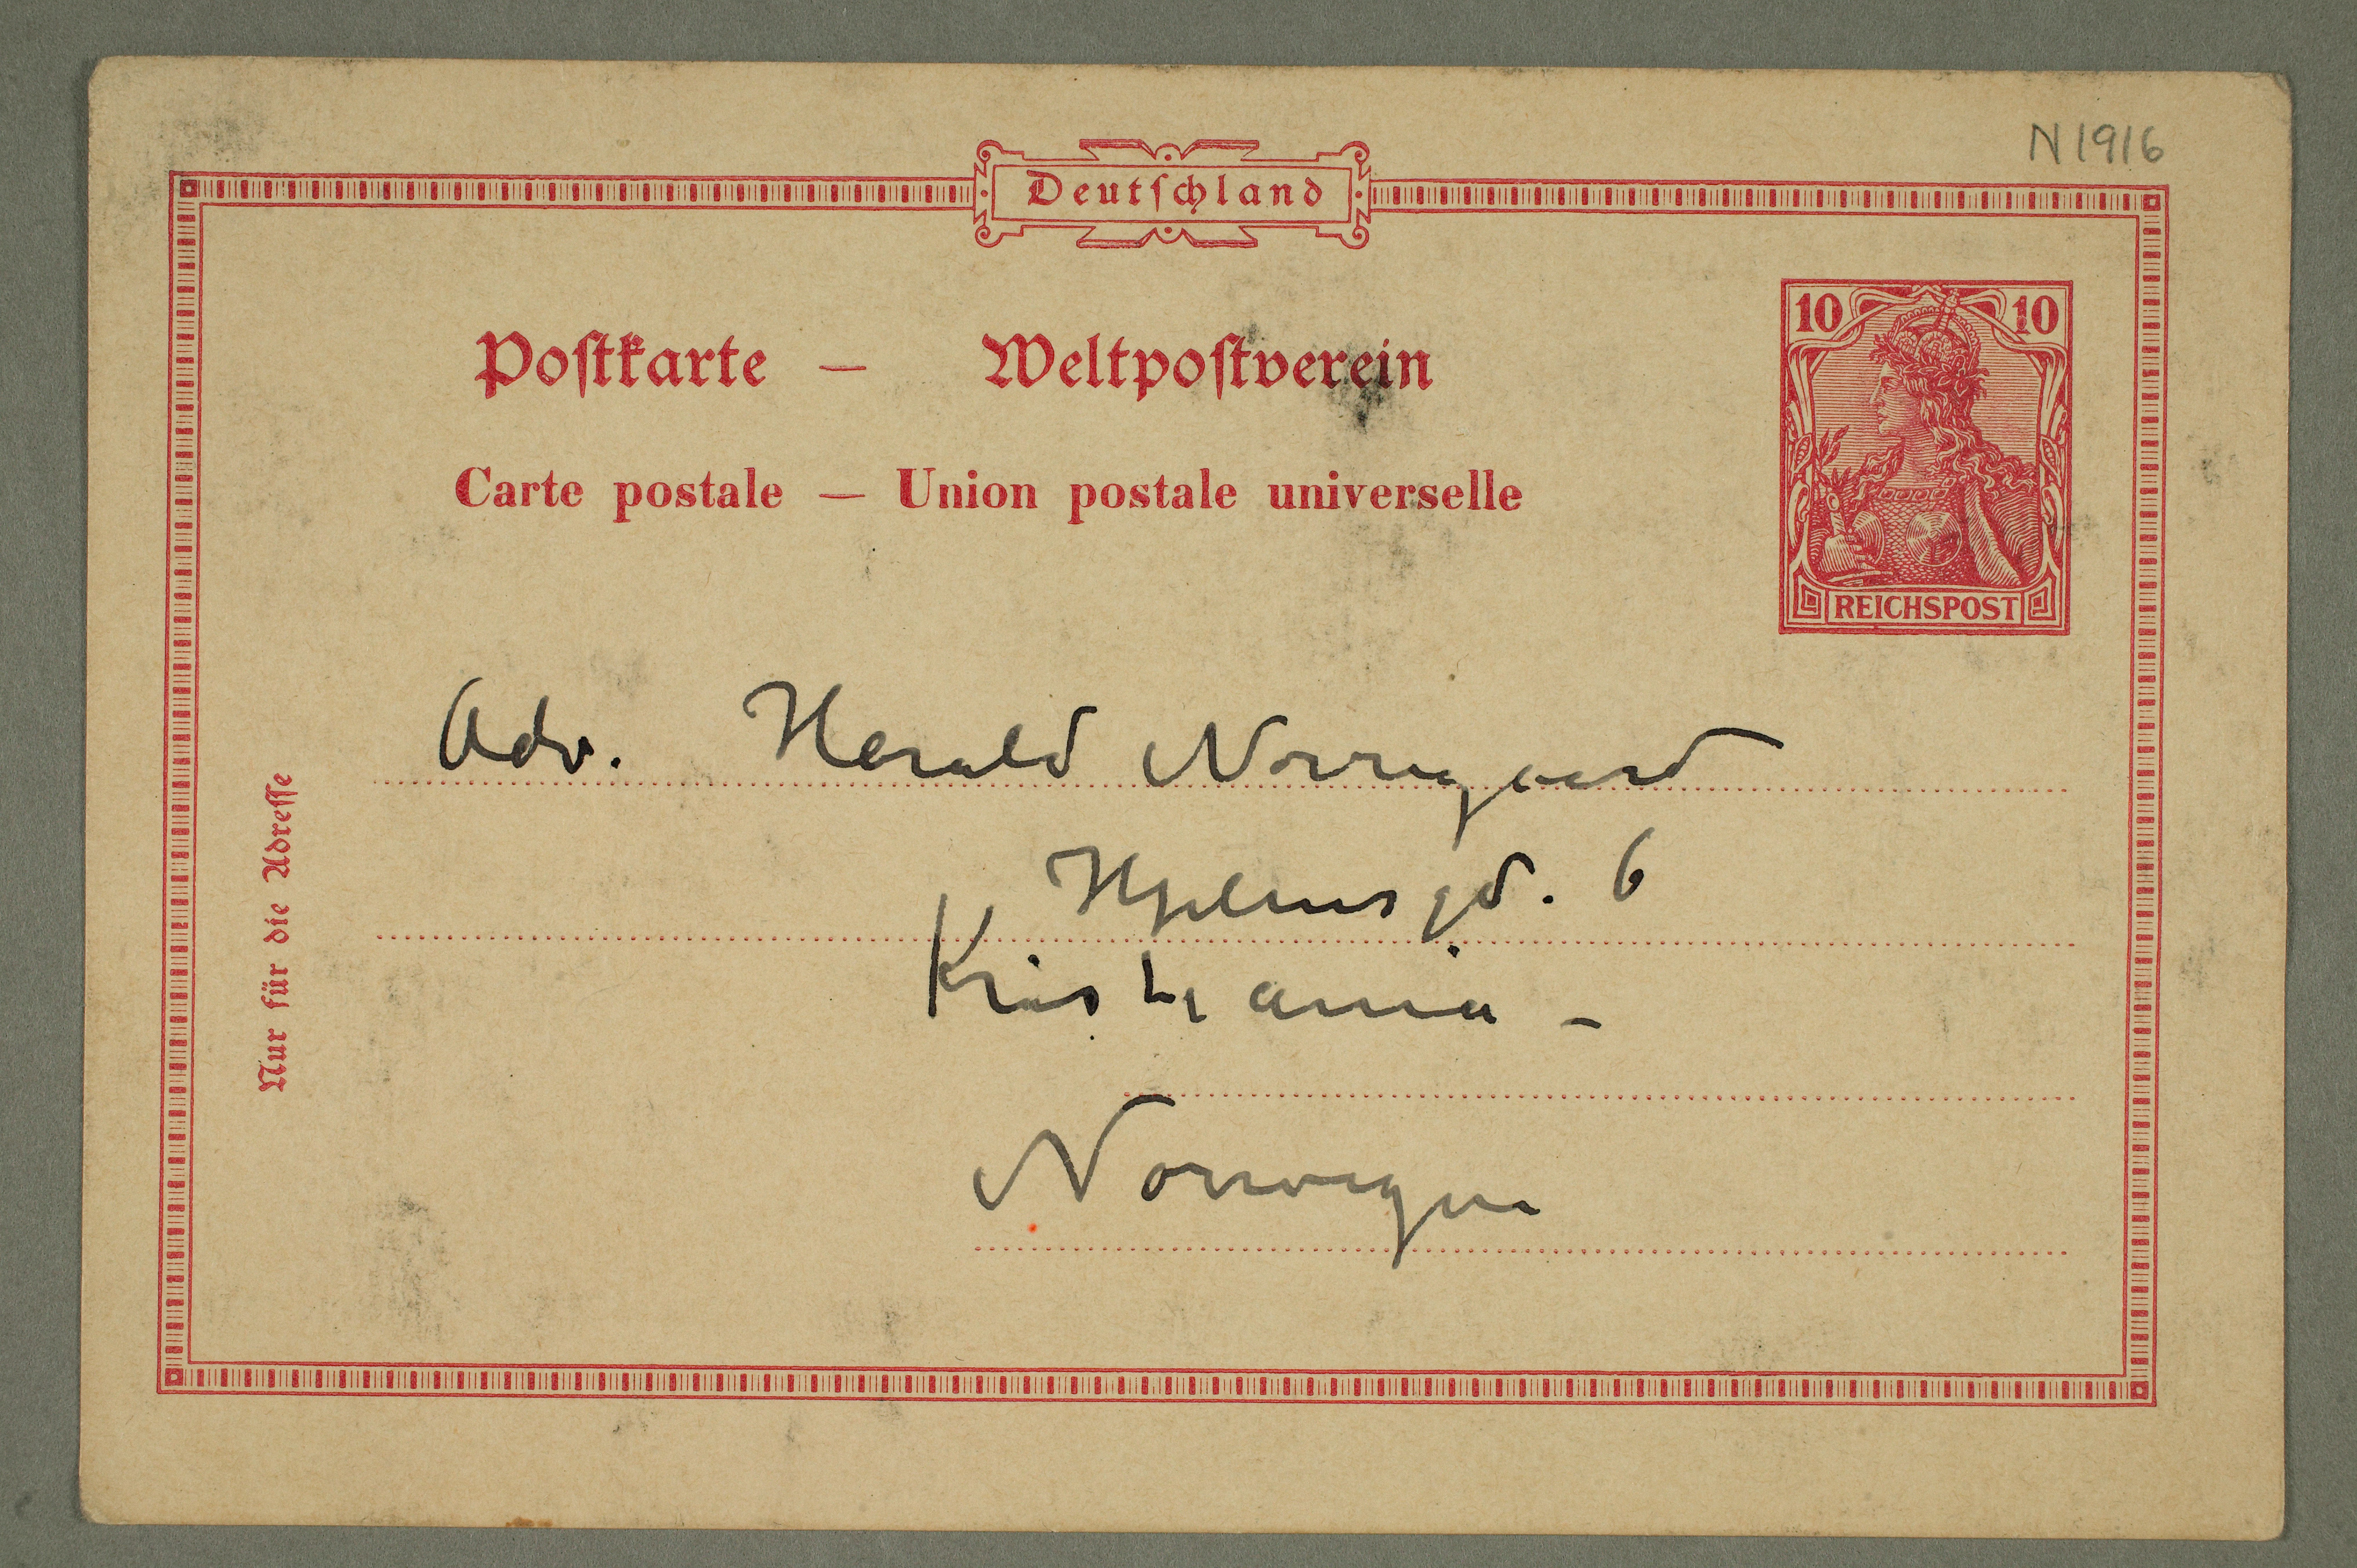 N 1916
Deutschland
Postkarte — Weltpostverein
10 10
Carte postale — Union postale universelle
REICHSPOST
Adv. Harald Nørregaard
Hjelmsgd. 6
Kristiania -
Norwegen
Nur für die Adresse